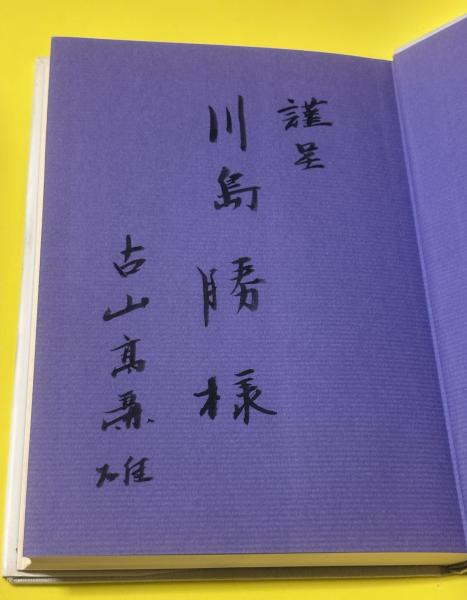 謹呈
川島勝様
古山高麗雄